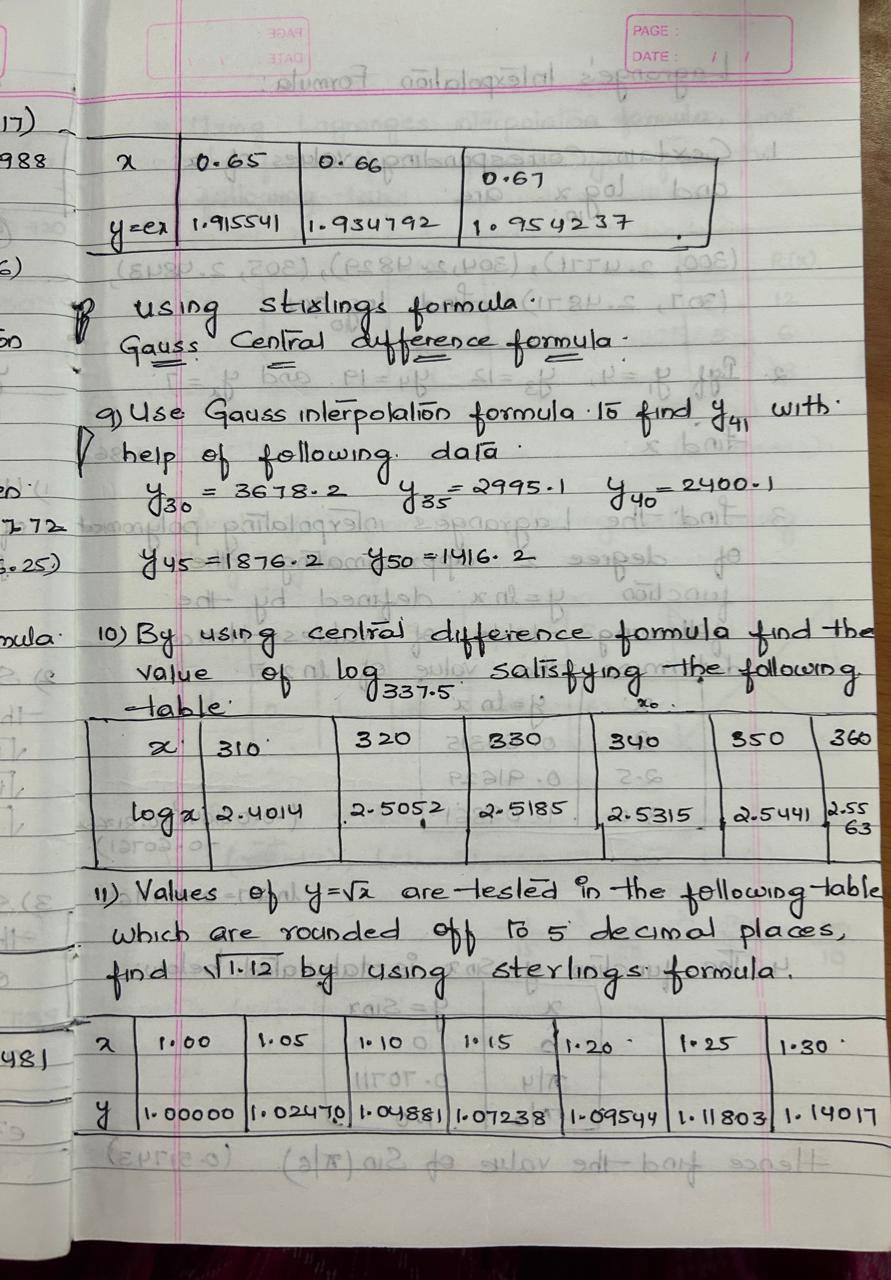 PAGE :
DATE : / /
17)
988
x 0.65 0.66 0.67
y=ex 1.915541 1.934792 1.954237
6)
using stirlings formula.
on
Gauss Central difference formula.
9) Use Gauss interpolation formula to find y41 with
help of following data.
y30 = 3678.2 y35 = 2995.1 y40 = 2400.1
772
5.25)
y45 = 1876.2 y50 = 1416.2
mula.
10) By using central difference formula find the
value of log337.5 satisfying the following
table. x0.
x 310 320 330 340 350 360
log x 2.4014 2.5052 2.5185 2.5315 2.5441 2.55
63
11) Values of y=√x are tested in the following table
which are rounded off to 5 decimal places,
find √1.12 by using sterlings formula.
x 1.00 1.05 1.10 1.15 1.20 1.25 1.30
481
y 1.00000 1.02470 1.04881 1.07238 1.09544 1.11803 1.14017